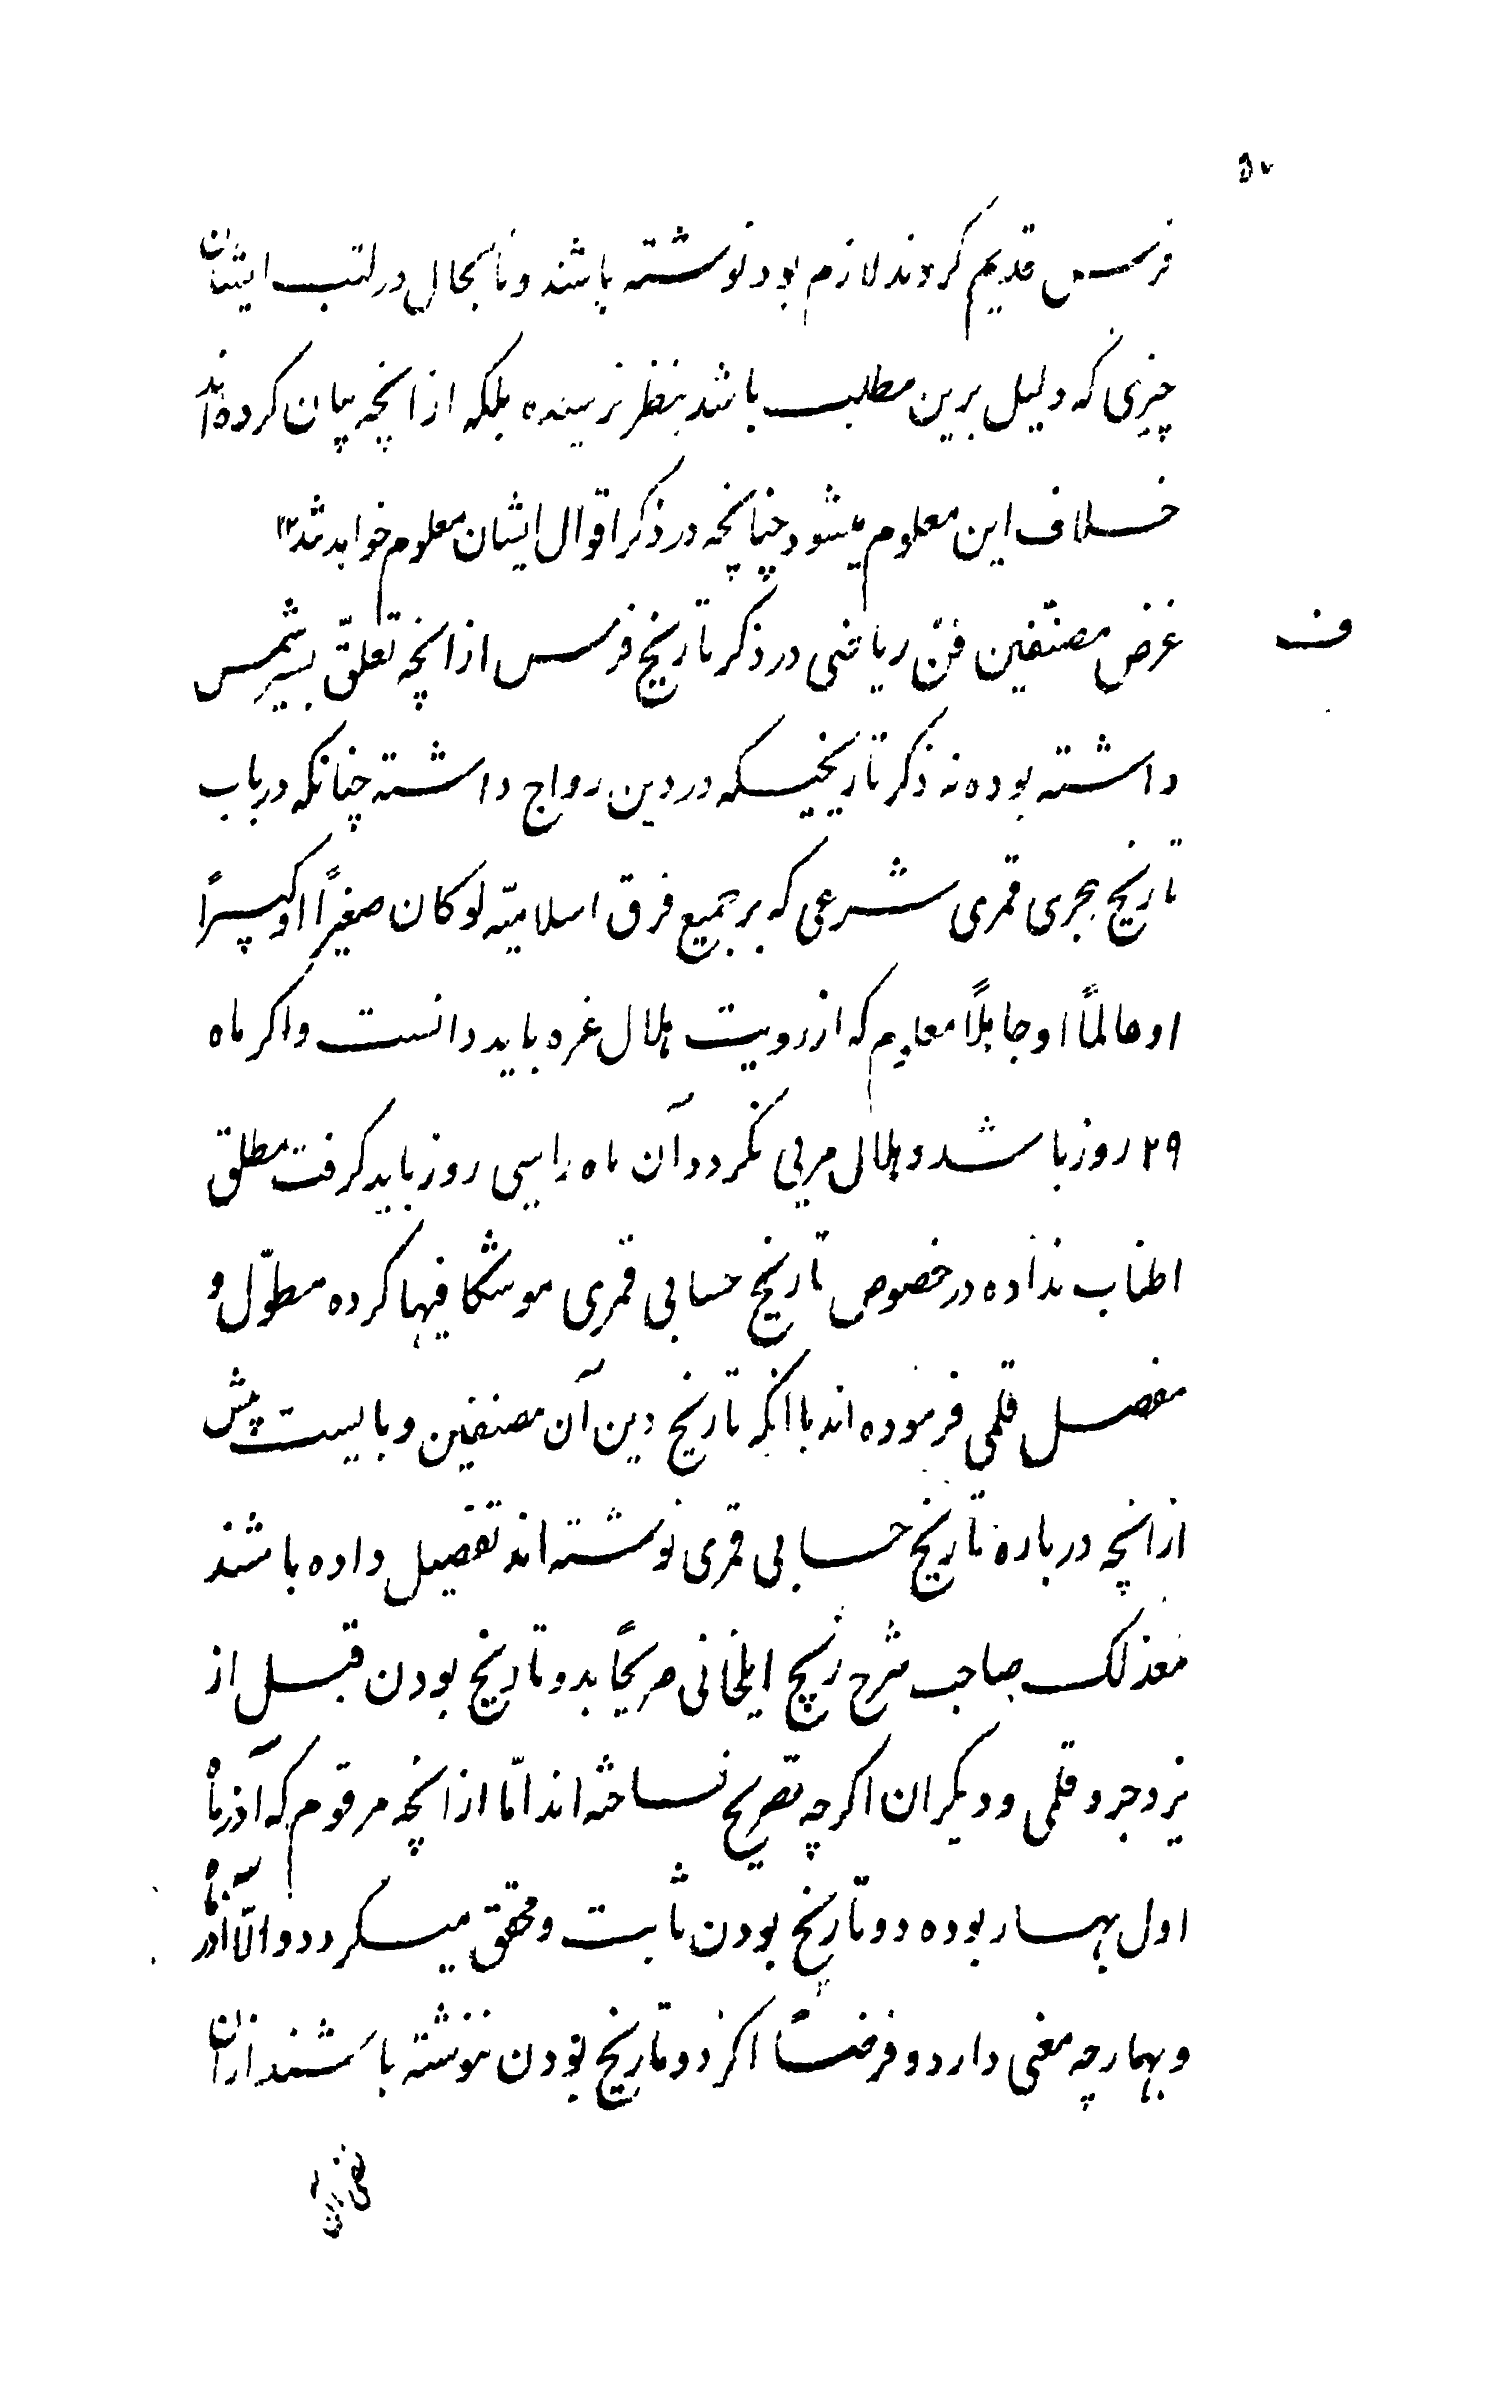 فرس قدیم کردند لازم بود نوشته باشند و تا بحال در کتب ایشان
چیزی که دلیل برین مطلب باشد بنظر نرسیده بلکه از انچه بیان کرده‌اند
خلاف این معلوم میشود چنانچه در ذکر اقوال ایشان معلوم خواهد شد ۱۲
ف
غرض مصنّفین فنّ ریاضی در ذکر تاریخ فرس از انچه تعلّق بسیر شمس
داشته بوده نه ذکر تاریخیکه در دین رواج داشته چنانکه در باب
تاریخ هجری قمری شرعی که بر جمیع فرق اسلامیّه لو کان صغیراً او کبیراً
او عالماً او جاهلاً معلوم که از رویت هلال غره باید دانست و اکر ماه
۲۹ روز باشد و هلال مریی نکردد آن ماه را سی روز باید کرفت مطلق
اطناب نداده در خصوص تاریخ حسابی قمری موشکافیها کرده مطوّل و
مفصل قلمی فرموده اند با انکه تاریخ دین آن مصنفین و بایست پیش
از انچه درباره تاریخ حسابی قمری نوشته اند تفصیل داده باشند
معذلک صاحب شرح زیچ ایلخانی صریحاً بدو تاریخ بودن قبل از
یزدجرد قلمی و دیکران اکرچه تصریح نساخته اند امّا از انچه مرقوم که آذرماه
اول بهار بوده دو تاریخ بودن ثابت و محقق میکردد و الّا آذرماه
و بهار چه معنی دارد و فرضاً اکر دو تاریخ بودن ننوشته باشند از ان